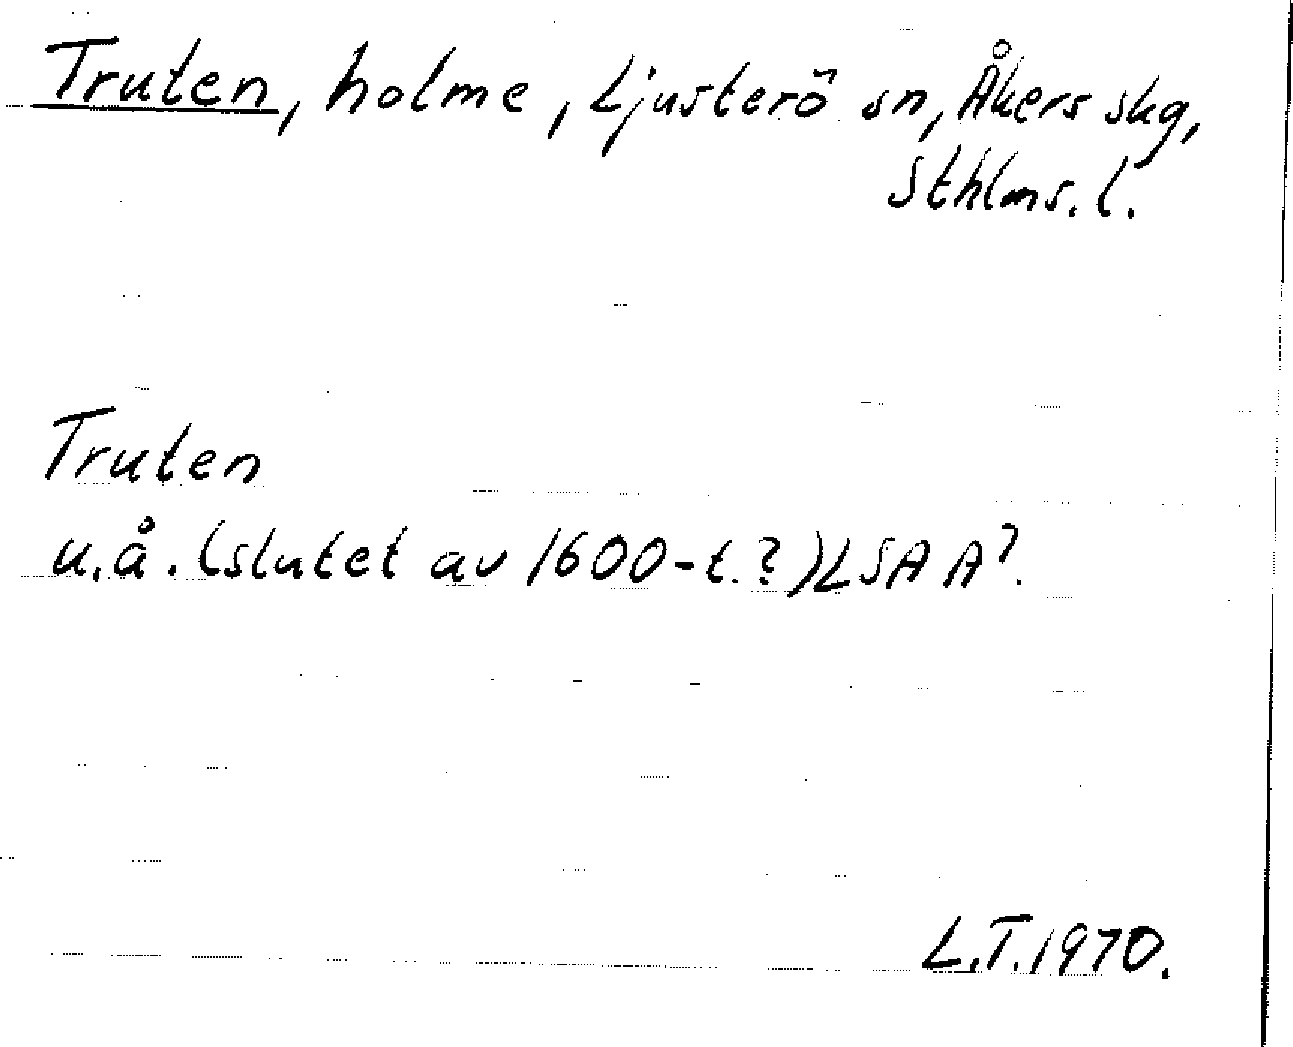 Truten, holme, Ljusterö sn, Åkers skg,
Sthlms. l.
Truten
u.å. (slutet av 1600-t.?) LSA A⁷.
L.T. 1970.